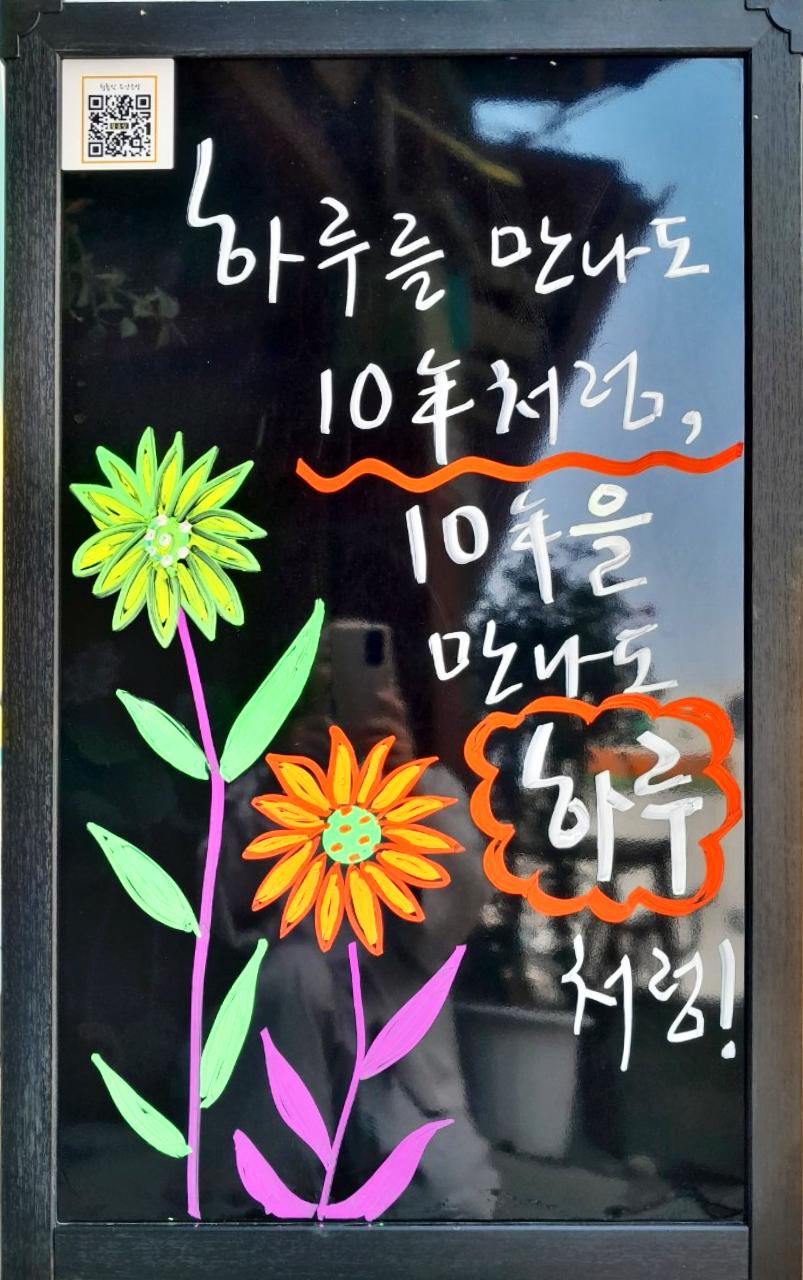 하루를 만나도
10年처럼,
10年을
만나도
하루
처럼!